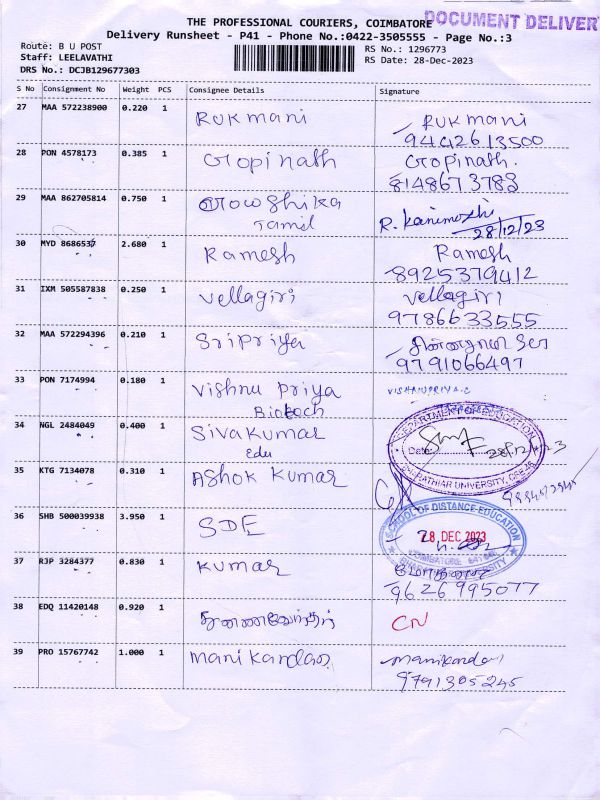 DOCUMENT DELIVER
THE PROFESSIONAL COURIERS, COIMBATORE
Delivery Runsheet - P41 - Phone No.:0422-3505555 - Page No.:3
Route: B U POST
Staff: LEELAVATHI
DRS No.: DCJB129677303
RS No.: 1296773
RS Date: 28-Dec-2023
S No Consignment No Weight PCS Consignee Details Signature
27 MAA 572238900 0.220 1 Rukmani Rukmani
9442613500
28 PON 4578173 0.385 1 Gopinath Gopinath.
8148673783
29 MAA 862705814 0.750 1 Gowshika R. Kanimozhi
Tamil 28/12/23
30 MYD 8686537 2.680 1 Ramesh Ramesh
8925379412
31 IXM 505587838 0.250 1 Vellagiri Vellagiri
9786633555
32 MAA 572294396 0.210 1 Sripriya
9791066497
33 PON 7174994 0.180 1 Vishnu Priya VISHNUPRIYA.C
Biotech
34 NGL 2484049 0.400 1 Sivakumar
Edu
DEPARTMENT OF EDUCATION
Date:
BHARATHIAR UNIVERSITY, CBE-46
35 KTG 7134078 0.310 1 Ashok Kumar
36 SHB 500039938 3.950 1 SDE
SCHOOL OF DISTANCE EDUCATION
28 DEC 2023
37 RJP 3284377 0.830 1 Kumar
9626995077
38 EDQ 11420148 0.920 1 CN
39 PRO 15767742 1.000 1 Manikandan Manikandan
9791305245